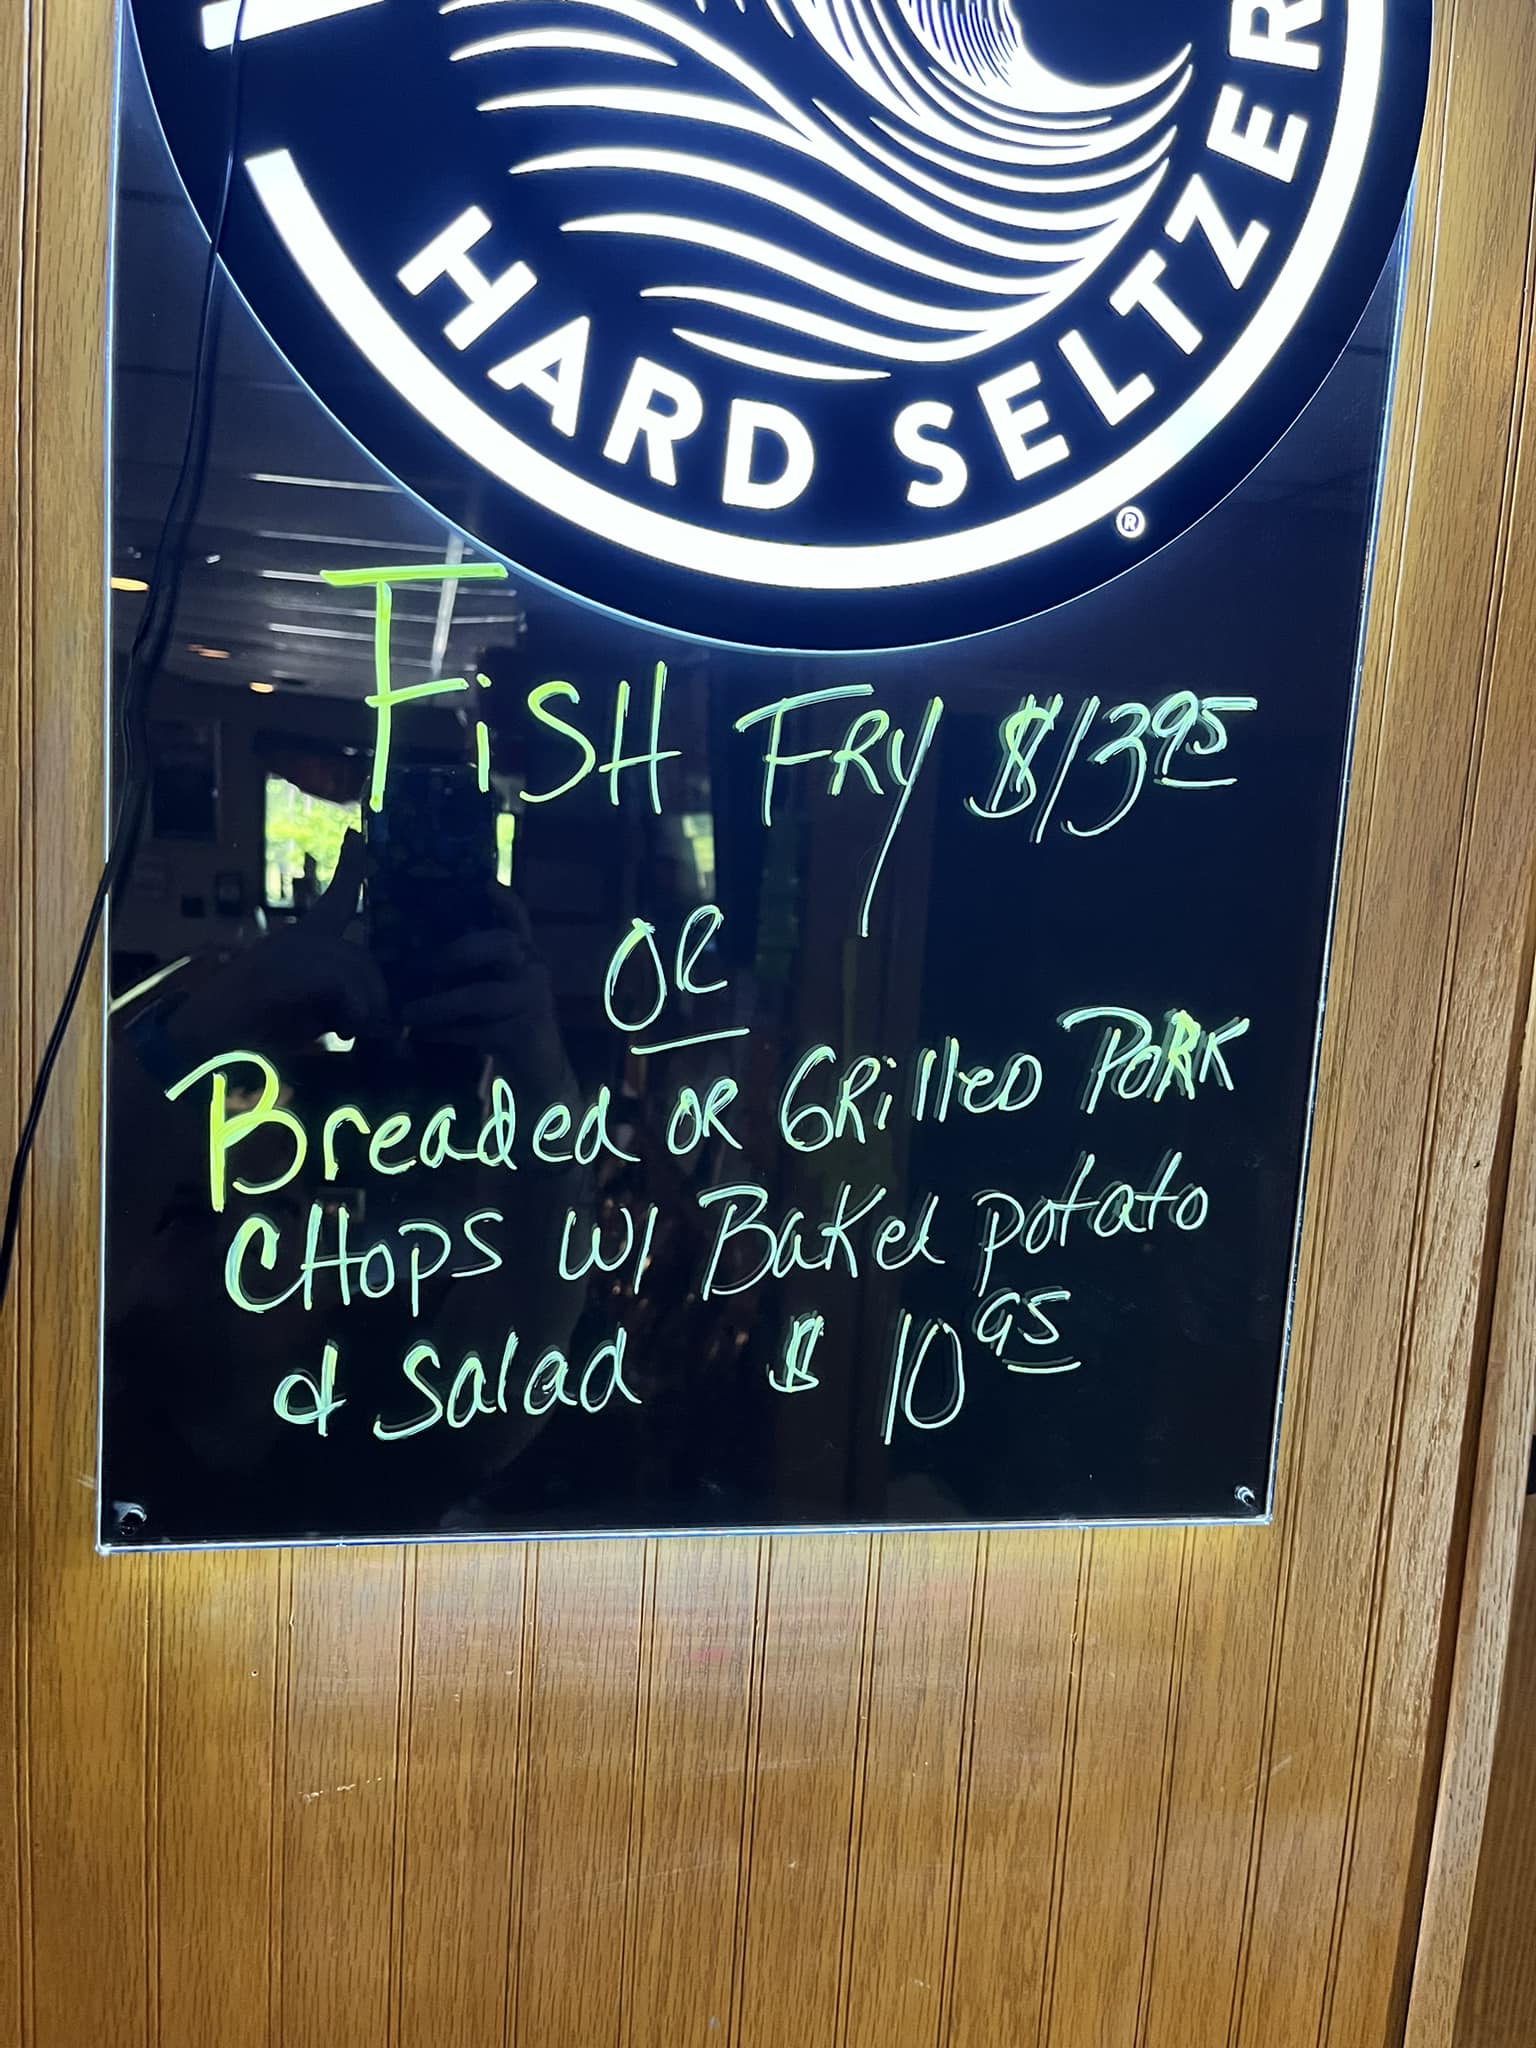 HARD SELTZER
®
FiSH FRY $13 95
OR
Breaded OR GRilled PORK
CHOPS W/ Baked potato
& Salad $ 10 95